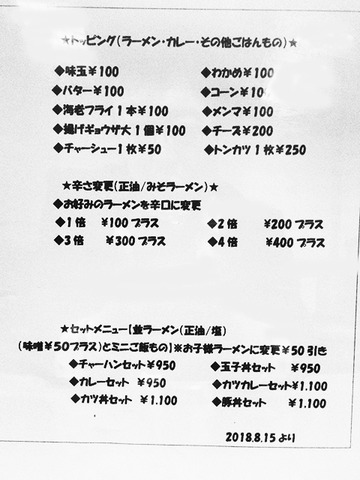 ★トッピング(ラーメン・カレー・その他ごはんもの)★
◆味玉¥100 ◆わかめ¥100
◆バター¥100 ◆コーン¥10
◆海老フライ1本¥100 ◆メンマ¥100
◆揚げギョウザ大1個¥100 ◆チーズ¥200
◆チャーシュー1枚¥50 ◆トンカツ1枚¥250
★辛さ変更(正油/みそラーメン)★
◆お好みのラーメンを辛口に変更
◆1倍 ¥100プラス ◆2倍 ¥200プラス
◆3倍 ¥300プラス ◆4倍 ¥400プラス
★セットメニュー【並ラーメン(正油/塩)
(味噌¥50プラス)とミニご飯もの】※お子様ラーメンに変更¥50引き
◆チャーハンセット¥950 ◆玉子丼セット ¥950
◆カレーセット ¥950 ◆カツカレーセット¥1.100
◆カツ丼セット ¥1.100 ◆豚丼セット ¥1.100
2018.8.15より